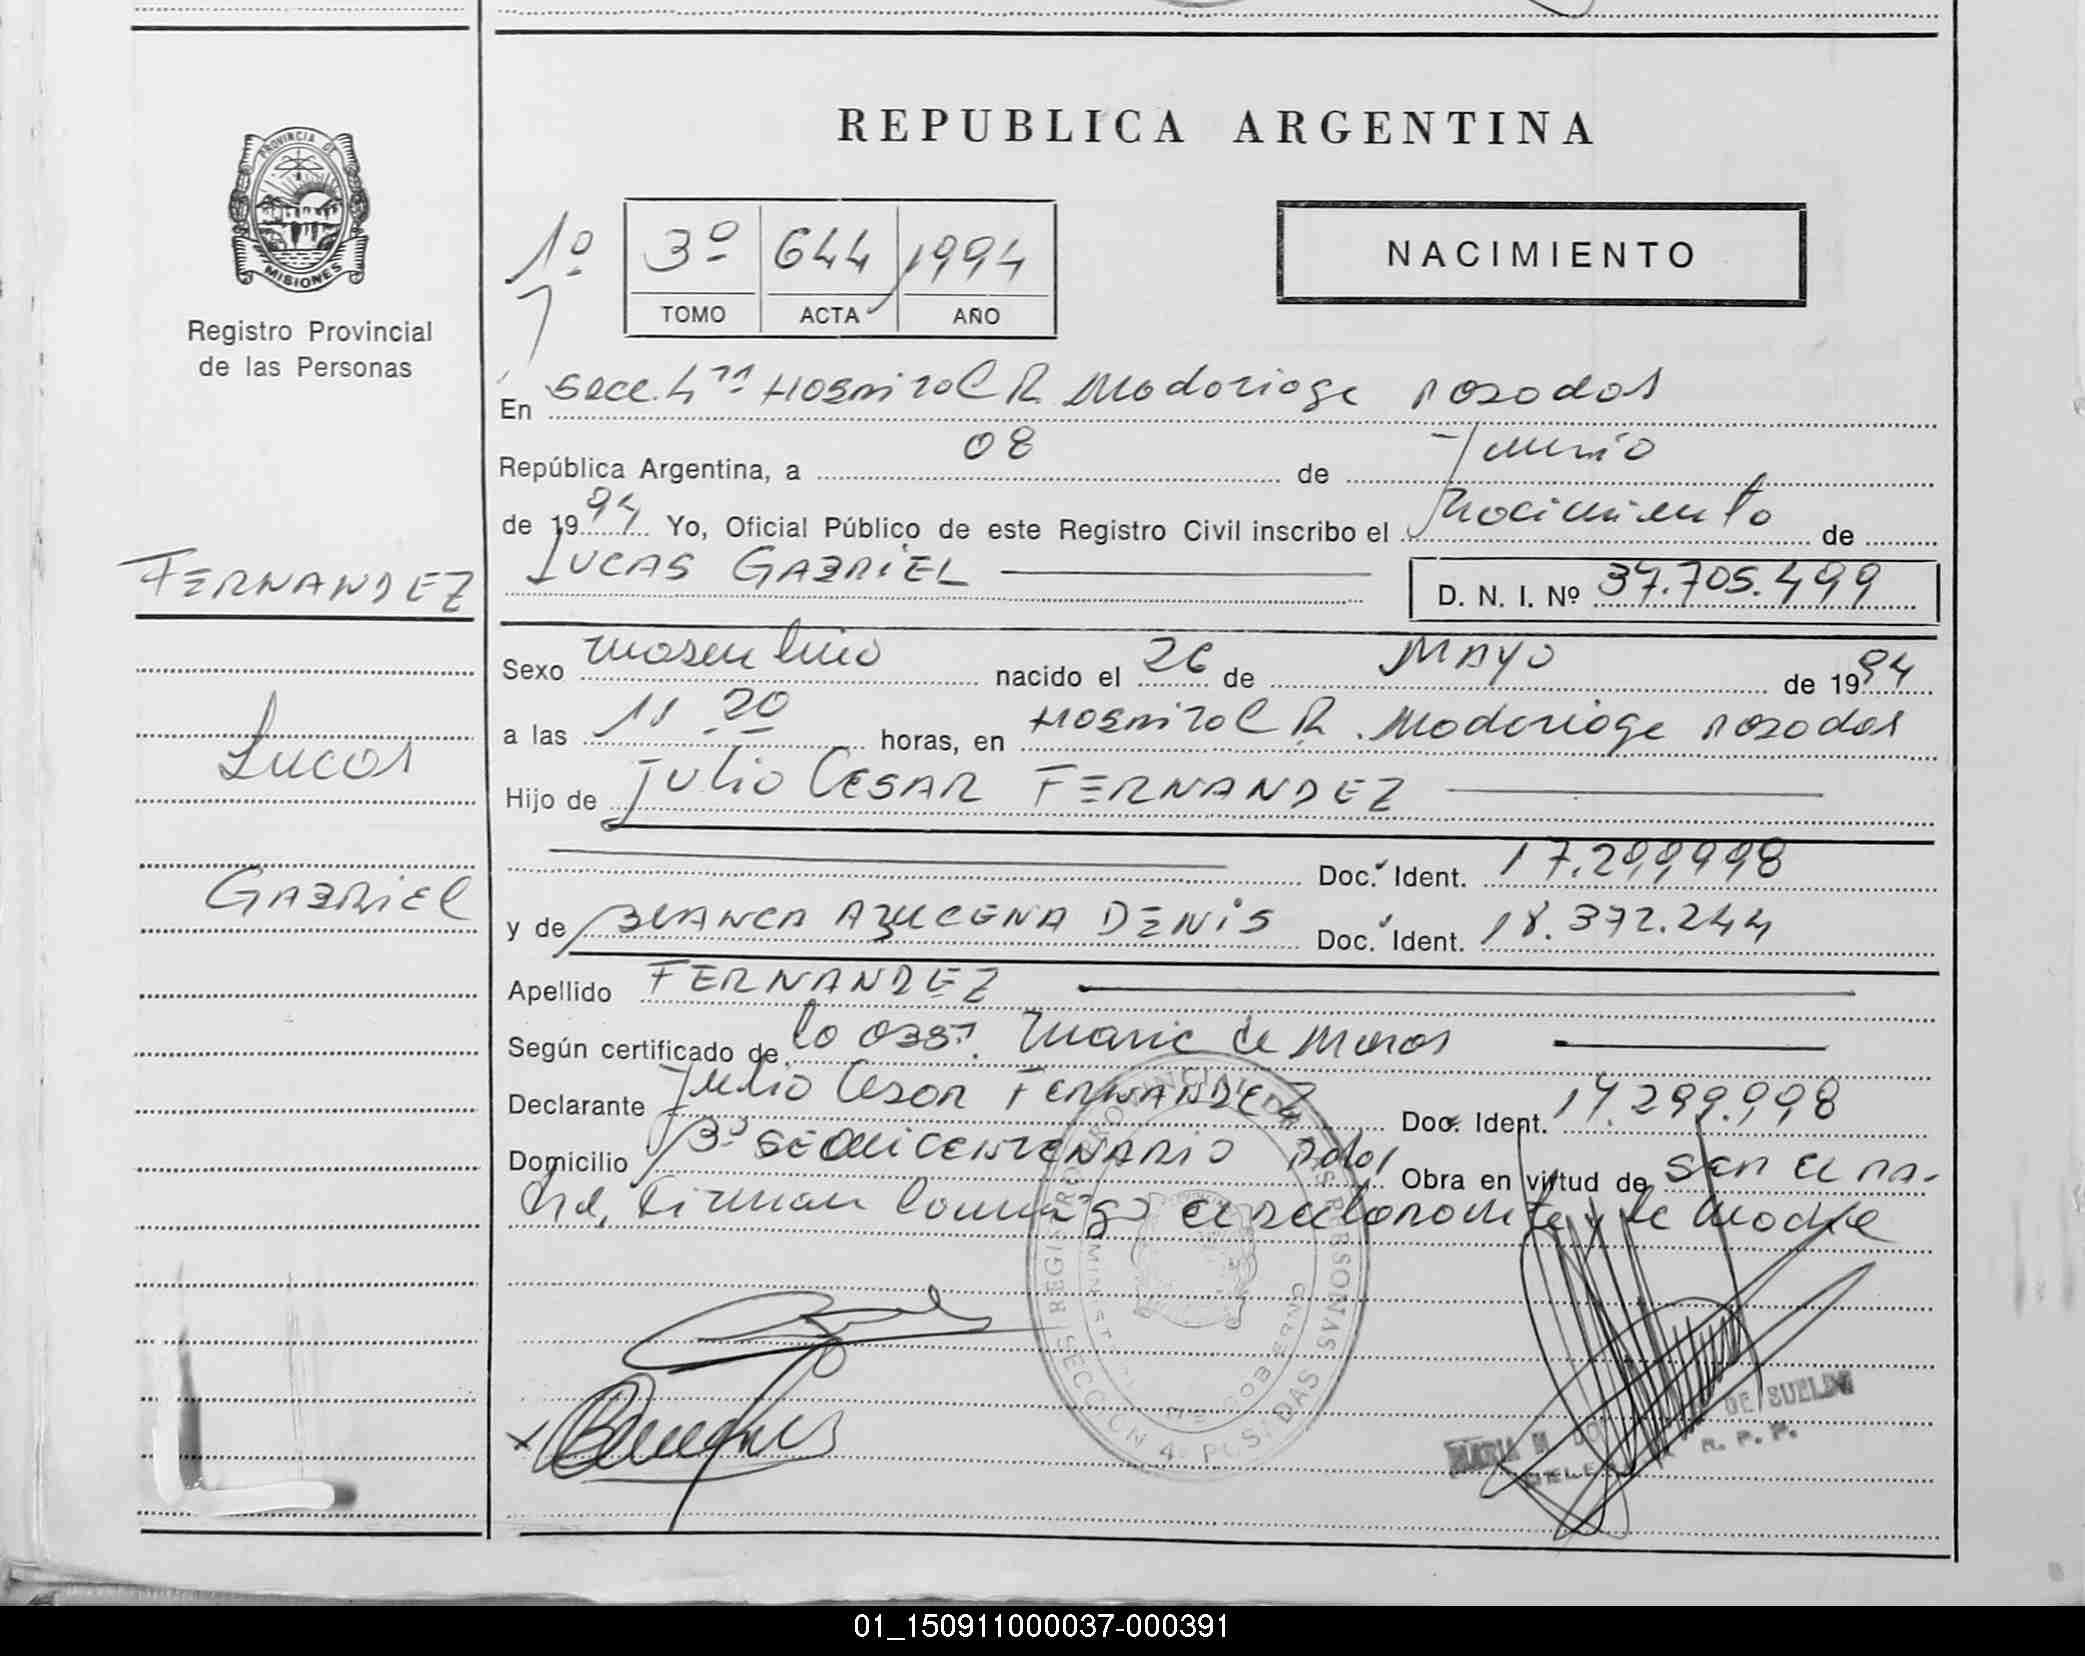 REPUBLICA ARGENTINA
PROVINCIA DE
MISIONES
Registro Provincial
de las Personas
1º 3º 644 1994
TOMO ACTA AÑO
NACIMIENTO
En Secc. 4ta Hospital R. Madariaga Posadas
República Argentina, a 08 de Junio
de 1994 Yo, Oficial Público de este Registro Civil inscribo el Nacimiento de
LUCAS GABRIEL D. N. I. Nº 37.705.499
FERNANDEZ
Sexo masculino nacido el 26 de MAYO de 1994
a las 11 20 horas, en Hospital R. Madariaga Posadas
Lucas
Hijo de Julio CESAR FERNANDEZ
Doc. Ident. 17.299.998
GABRIEL
y de BLANCA AZUCENA DENIS Doc. Ident. 18.372.244
Apellido FERNANDEZ
Según certificado de la Obst. Maric de Meras
Declarante Julio Cesar FERNANDEZ Doc. Ident. 17.299.998
Domicilio Bº SEQUICENTENARIO Pdas Obra en virtud de Ser el pa-
dre, Firman conmigo el declarante y la Madre
REGISTRO PROVINCIAL DE LAS PERSONAS
SECCION 4ª POSADAS
MINISTERIO DE GOBIERNO
MARIA DE SUELDO
R. P. P.
01_150911000037-000391